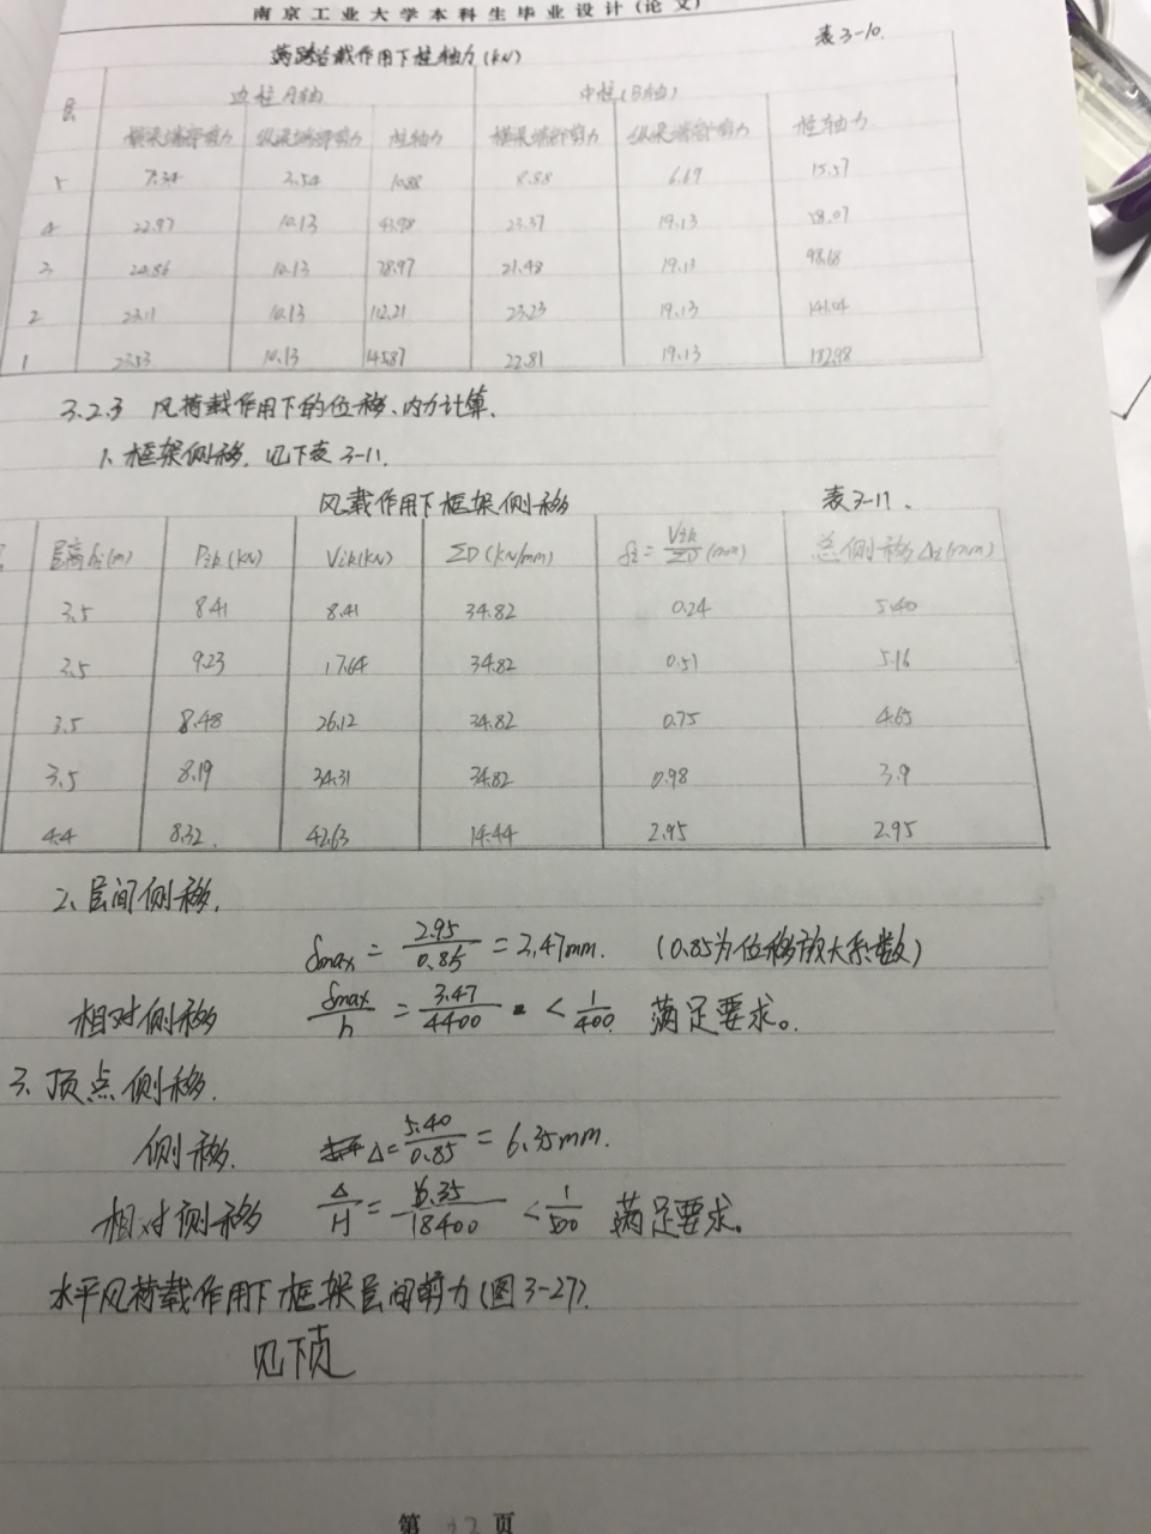 南京工业大学本科生毕业设计(论文)
满跨活载作用下柱轴力(kN) 表3-10.
层 边柱A轴 中柱(B轴)
横梁端部剪力 纵梁端部剪力 柱轴力 横梁端部剪力 纵梁端部剪力 柱轴力
5 7.34 3.54 10.88 8.88 6.69 15.57
4 22.97 10.13 43.98 23.37 19.13 58.07
3 24.86 10.13 78.97 21.48 19.13 98.68
2 23.11 10.13 112.21 23.23 19.13 141.04
1 23.53 10.13 145.87 22.81 19.13 182.98
3.2.3 风荷载作用下的位移、内力计算.
1、框架侧移. 见下表 3-11.
风载作用下框架侧移 表3-11.
层高hi(m) Pik(kN) Vik(kN) ΣD(kN/mm) δi=Vik/ΣD(mm) 总侧移Δi(mm)
3.5 8.41 8.41 34.82 0.24 5.40
3.5 9.23 17.64 34.82 0.51 5.16
3.5 8.48 26.12 34.82 0.75 4.65
3.5 8.19 34.31 34.82 0.98 3.9
4.4 8.32. 42.63 14.44 2.95 2.95
2、层间侧移.
δmax = 2.95/0.85 = 3.47mm. (0.85为位移放大系数)
相对侧移 δmax/h = 3.47/4400 < 1/400 满足要求。
3、顶点侧移.
侧移. Δ=5.40/0.85 = 6.35mm.
相对侧移 Δ/H = 6.35/18400 < 1/500 满足要求。
水平风荷载作用下框架层间剪力(图3-27).
见下页
第 32 页